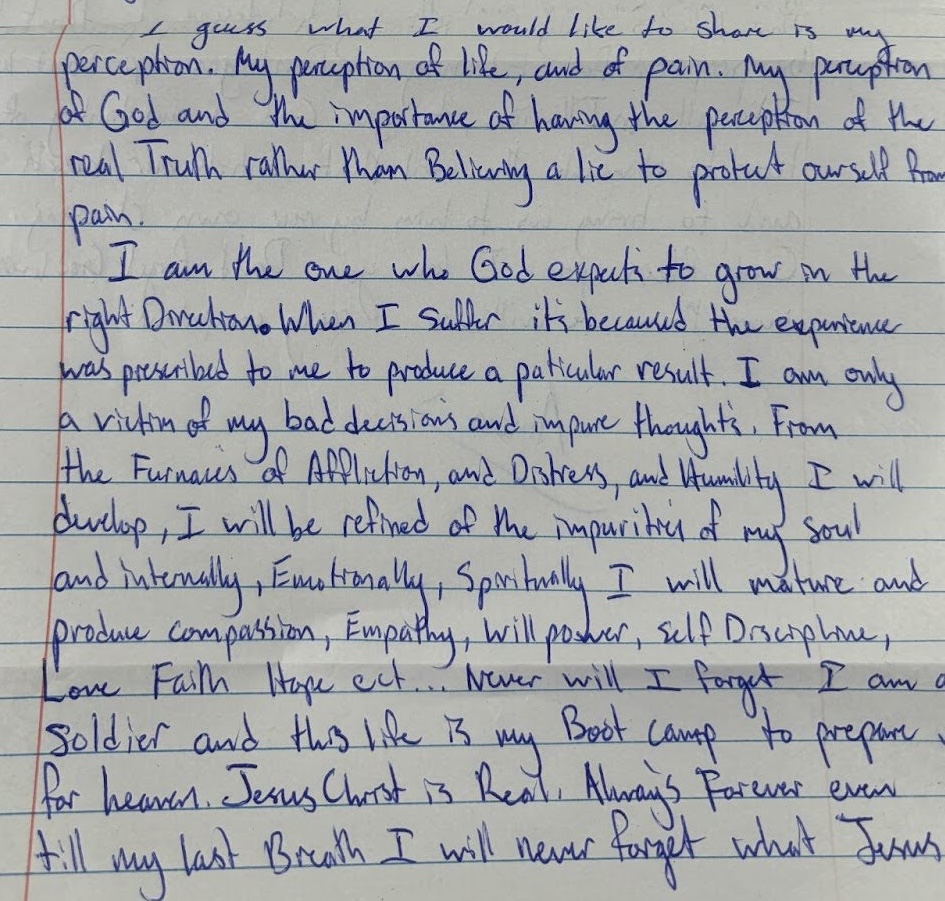 I guess what I would like to share is my
perception. My perception of life, and of pain. My perception
of God and the importance of having the perception of the
real Truth rather than Believing a lie to protect ourself from
pain.
I am the one who God expects to grow in the
right Direction. When I suffer it's becaused the experience
was prescribed to me to produce a paticular result. I am only
a victim of my bad decisions and impure thoughts. From
the Furnaces of Affliction, and Distress, and Humility I will
develop, I will be refined of the impurities of my soul
and internally, Emotionally, Spiritually I will mature and
produce compassion, Empathy, Will power, self Discipline,
Love Faith Hope ect... Never will I forget I am a
soldier and this life is my Boot camp to prepare
for heaven. Jesus Christ is Real. Always Forever even
till my last Breath I will never forget what Jesus